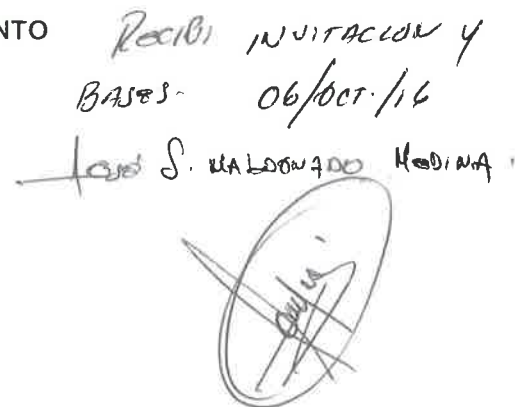 NTO Recibi INVITACION Y
BASES- 06/OCT./16
José S. MALDONADO MEDINA.